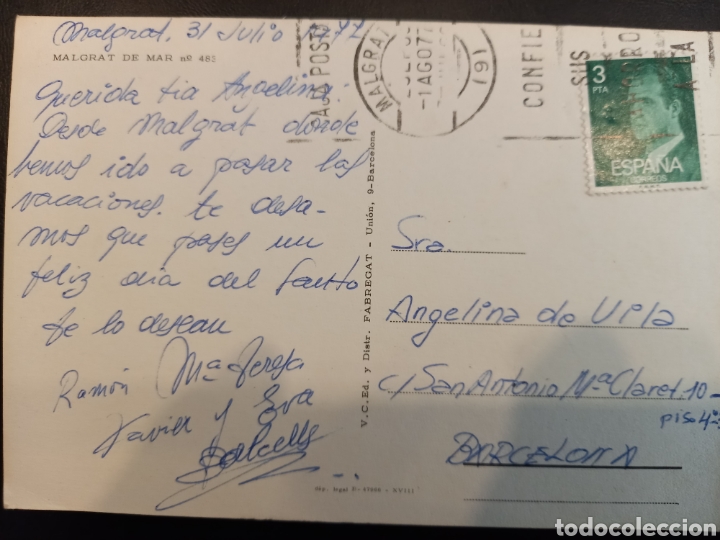 Malgrat, 31 Julio 1977
MALGRAT DE MAR nº 463
Querida tia Angelina:
Desde Malgrat donde
hemos ido a pasar las
vacaciones. te desa-
mos que pases un
feliz dia del Santo
te lo desean
Ramón Mª Teresa
Xavier y Eva
V.C. Ed. y Distr. FABREGAT - Unión, 9-Barcelona
MALGRAT
-1 AGO 77
(91)
CONFIE
SUS
A LA
3
PTA
ESPAÑA
CORREOS
Sra.
Angelina de Vila
c/ San Antonio Mª Claret. 10-
piso 4º
BARCELONA
todocoleccion
todocoleccion.net